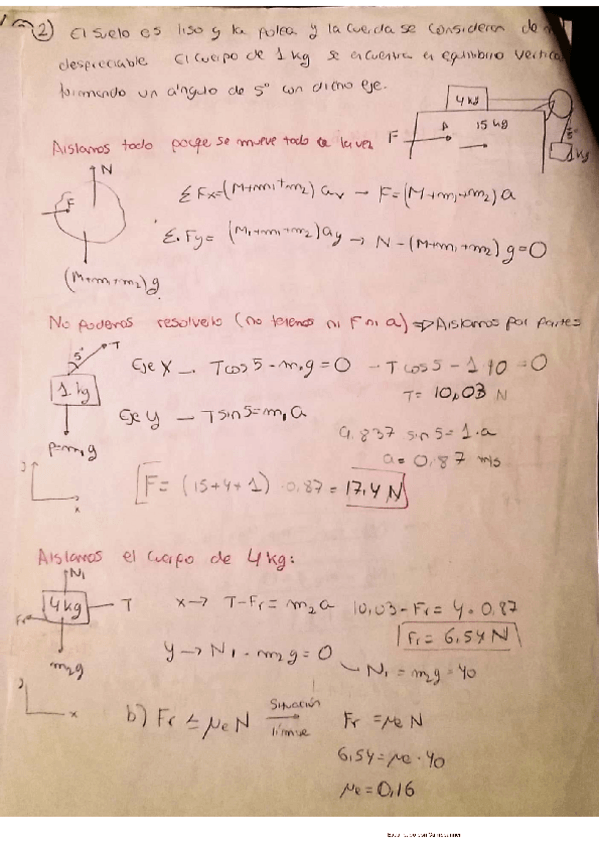 2) El suelo es liso y la polea y la cuerda se consideran de
despreciable El cuerpo de 1 kg se encuentra en equilibrio vertical
formando un ángulo de 5º con dicho eje.
4 kg
15 kg
F
5º
1 kg
Aislamos todo porqe se mueve todo a la vez
N
F
(M+m1+m2)g
ΣFx=(M+m1+m2) ax → F=(M+m1+m2)a
ΣFy= (M+m1+m2)ay → N-(M+m1+m2)g=0
No podemos resolverlo (no tenemos ni F ni a) ⇒ Aislamos por partes
5º T
1 kg
P=m1g
y
x
Eje X → Tcos5-m1g=0 → Tcos5-1·10=0
T= 10,03 N
Eje Y → Tsin5=m1a
9.837 sin5=1·a
a= 0,87 m/s
F= (15+4+1)·0,87=17,4 N
Aislamos el cuerpo de 4 kg:
N1
4 kg
T
Fr
m2g
y
x
x→ T-Fr=m2a 10,03-Fr=4·0,87
Fr=6,54 N
y→N1-m2g=0
N1=m2g=40
b) Fr ≤ μe N Situación límite → Fr =μe N
6,54=μe·40
μe=0,16